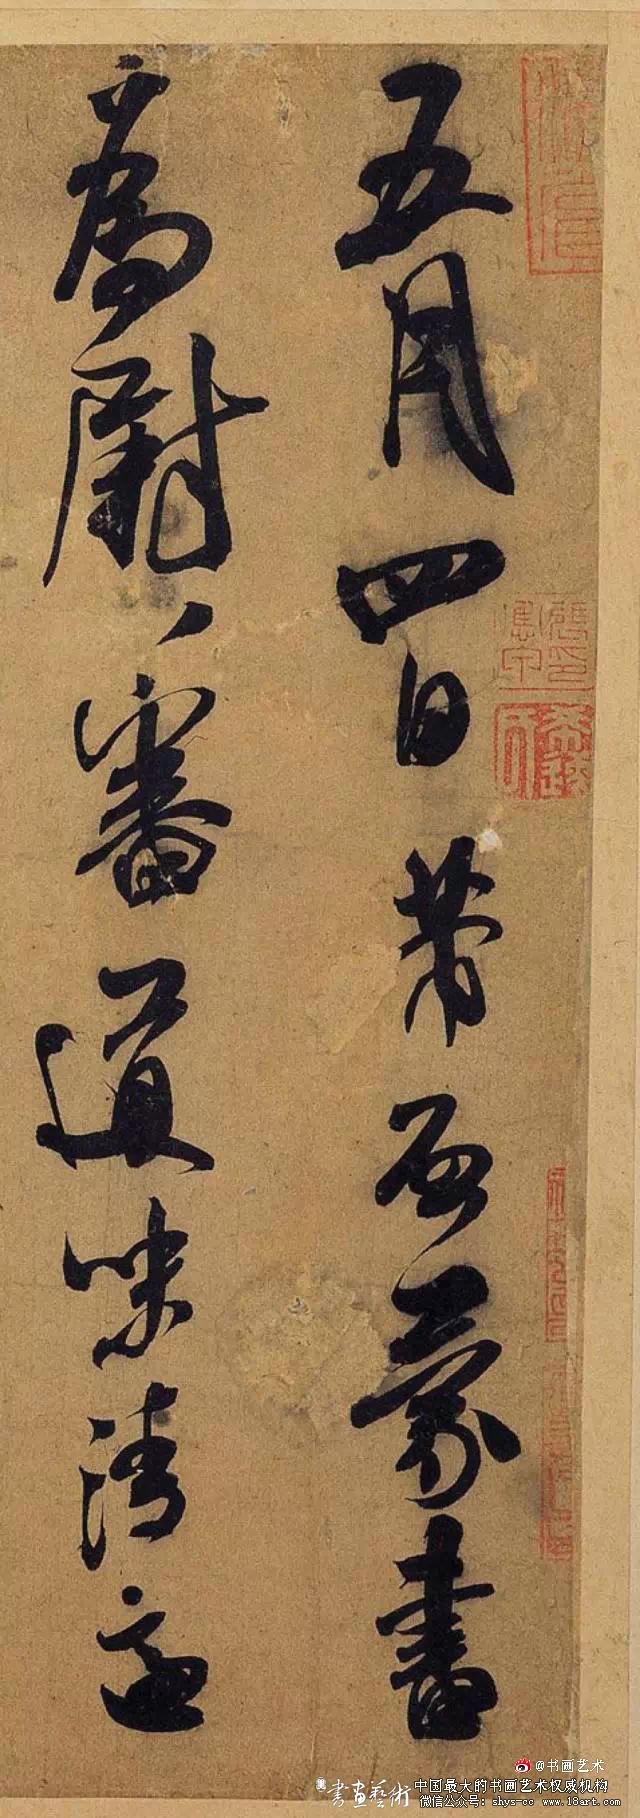 五月四日芾启蒙書
為尉〻審道味清適
@书画艺术
書畫藝術 中国最大的书画艺术权威机构
微信公众号: shys-cc www.18art.com